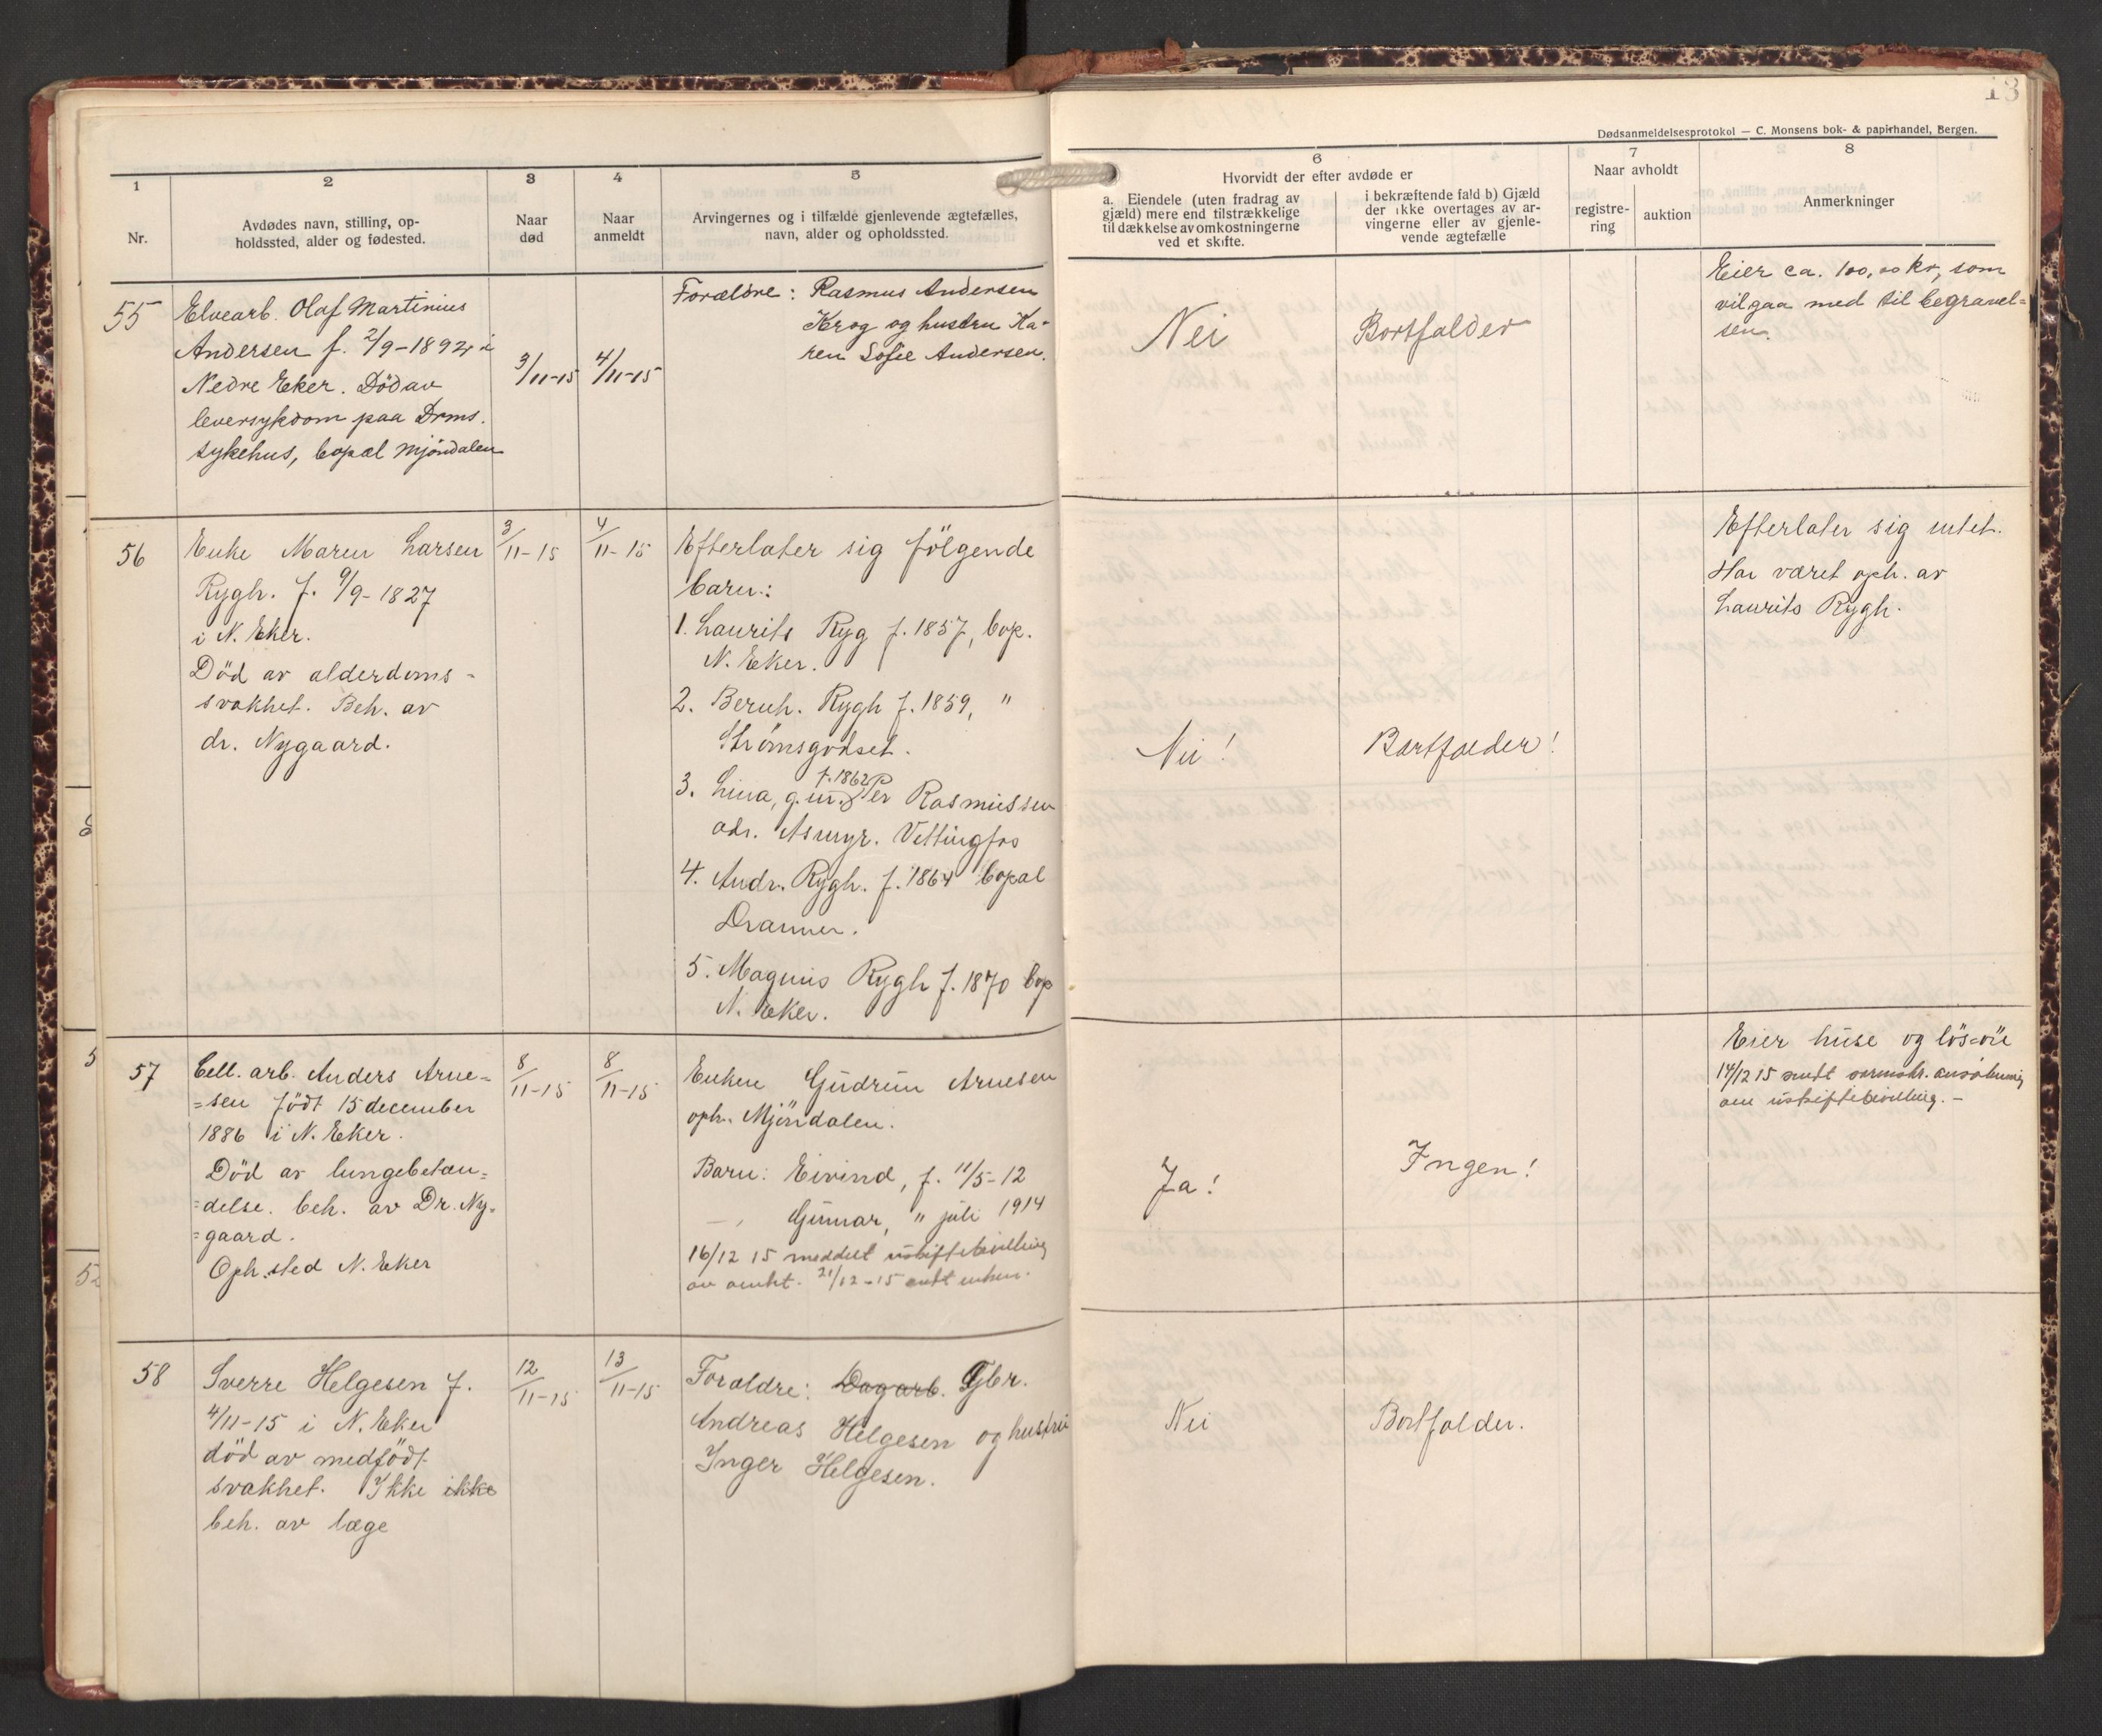 13
Dødsanmeldelsesprotokol — C. Monsens bok- & papirhandel, Bergen.
1
Nr.
2
Avdødes navn, stilling, op-
holdssted, alder og fødested.
3
Naar
død
4
Naar
anmeldt
5
Arvingernes og i tilfælde gjenlevende ægtefælles,
navn, alder og opholdssted.
6
Hvorvidt der efter avdøde er
a. Eiendele (uten fradrag av
gjæld) mere end tilstrækkelige
til dækkelse av omkostningerne
ved et skifte.
i bekræftende fald b) Gjæld
der ikke overtages av ar-
vingerne eller av gjenle-
vende ægtefælle
7
Naar avholdt
registre-
ring
auktion
8
Anmerkninger
55
Elvearb. Olaf Martinius
Andersen f. 2/9-1892 i
Nedre Eker. Död av
leversykdom paa Drms.
sykehus, bopæl Mjöndalen
3/11-15
4/11-15
Forældre: Rasmus Andersen
Krog og hustru Ka-
ren Sofie Andersen.
Nei
Bortfalder
Eier ca. 100,00 kr, som
vil gaa med til begravel=
sen.
56
Enke Maren Larsen
Rygh. f. 9/9-1827
i N. Eker.
Död av alderdoms-
svakhet. Beh. av
dr. Nygaard.
3/11-15
4/11-15
Efterlater sig fölgende
barn:
1. Laurits Ryg f. 1857, bop.
N. Eker.
2. Bernh. Rygh f. 1859, "
Strömsgodset.
f. 1862
3. Lina, g. m. Per Rasmussen
adr. Asmyr. Vittingfos
4. Andr. Rygh. f. 1864 bopæl
Drammen.
5. Magnus Rygh f. 1870 bop
N. Eker.
Nei!
Bortfalder!
Efterlater sig intet.
Har været oph. av
Laurits Rygh.
57
Cell. arb. Anders Arne=
=sen födt 15 december
1886 i N. Eker.
Död av lungebetæn=
=delse. beh. av Dr. Ny=
=gaard.
Oph.sted N. Eker
8/11-15
8/11-15
Enken Gudrun Arnesen
oph. Mjöndalen.
Barn: Eivind, f. 11/5-12
— , Gunnar, " juli 1914
16/12 15 meddelt uskiftebevilling
av amtet. 21/12-15 sendt enken.
Ja!
Ingen!
Eier huse og lös=öre
14/12 15 sendt sorenskr. ansökning
om uskiftebevilling. —
58
Sverre Helgesen f.
4/11-15 i N. Eker
död av medfödt
svakhet. Ikke ikke
beh. av læge
12/11-15
13/11-15
Forældre: Dagarb. Gbr.
Andreas Helgesen og hustru
Inger Helgesen.
Nei
Bortfalder.